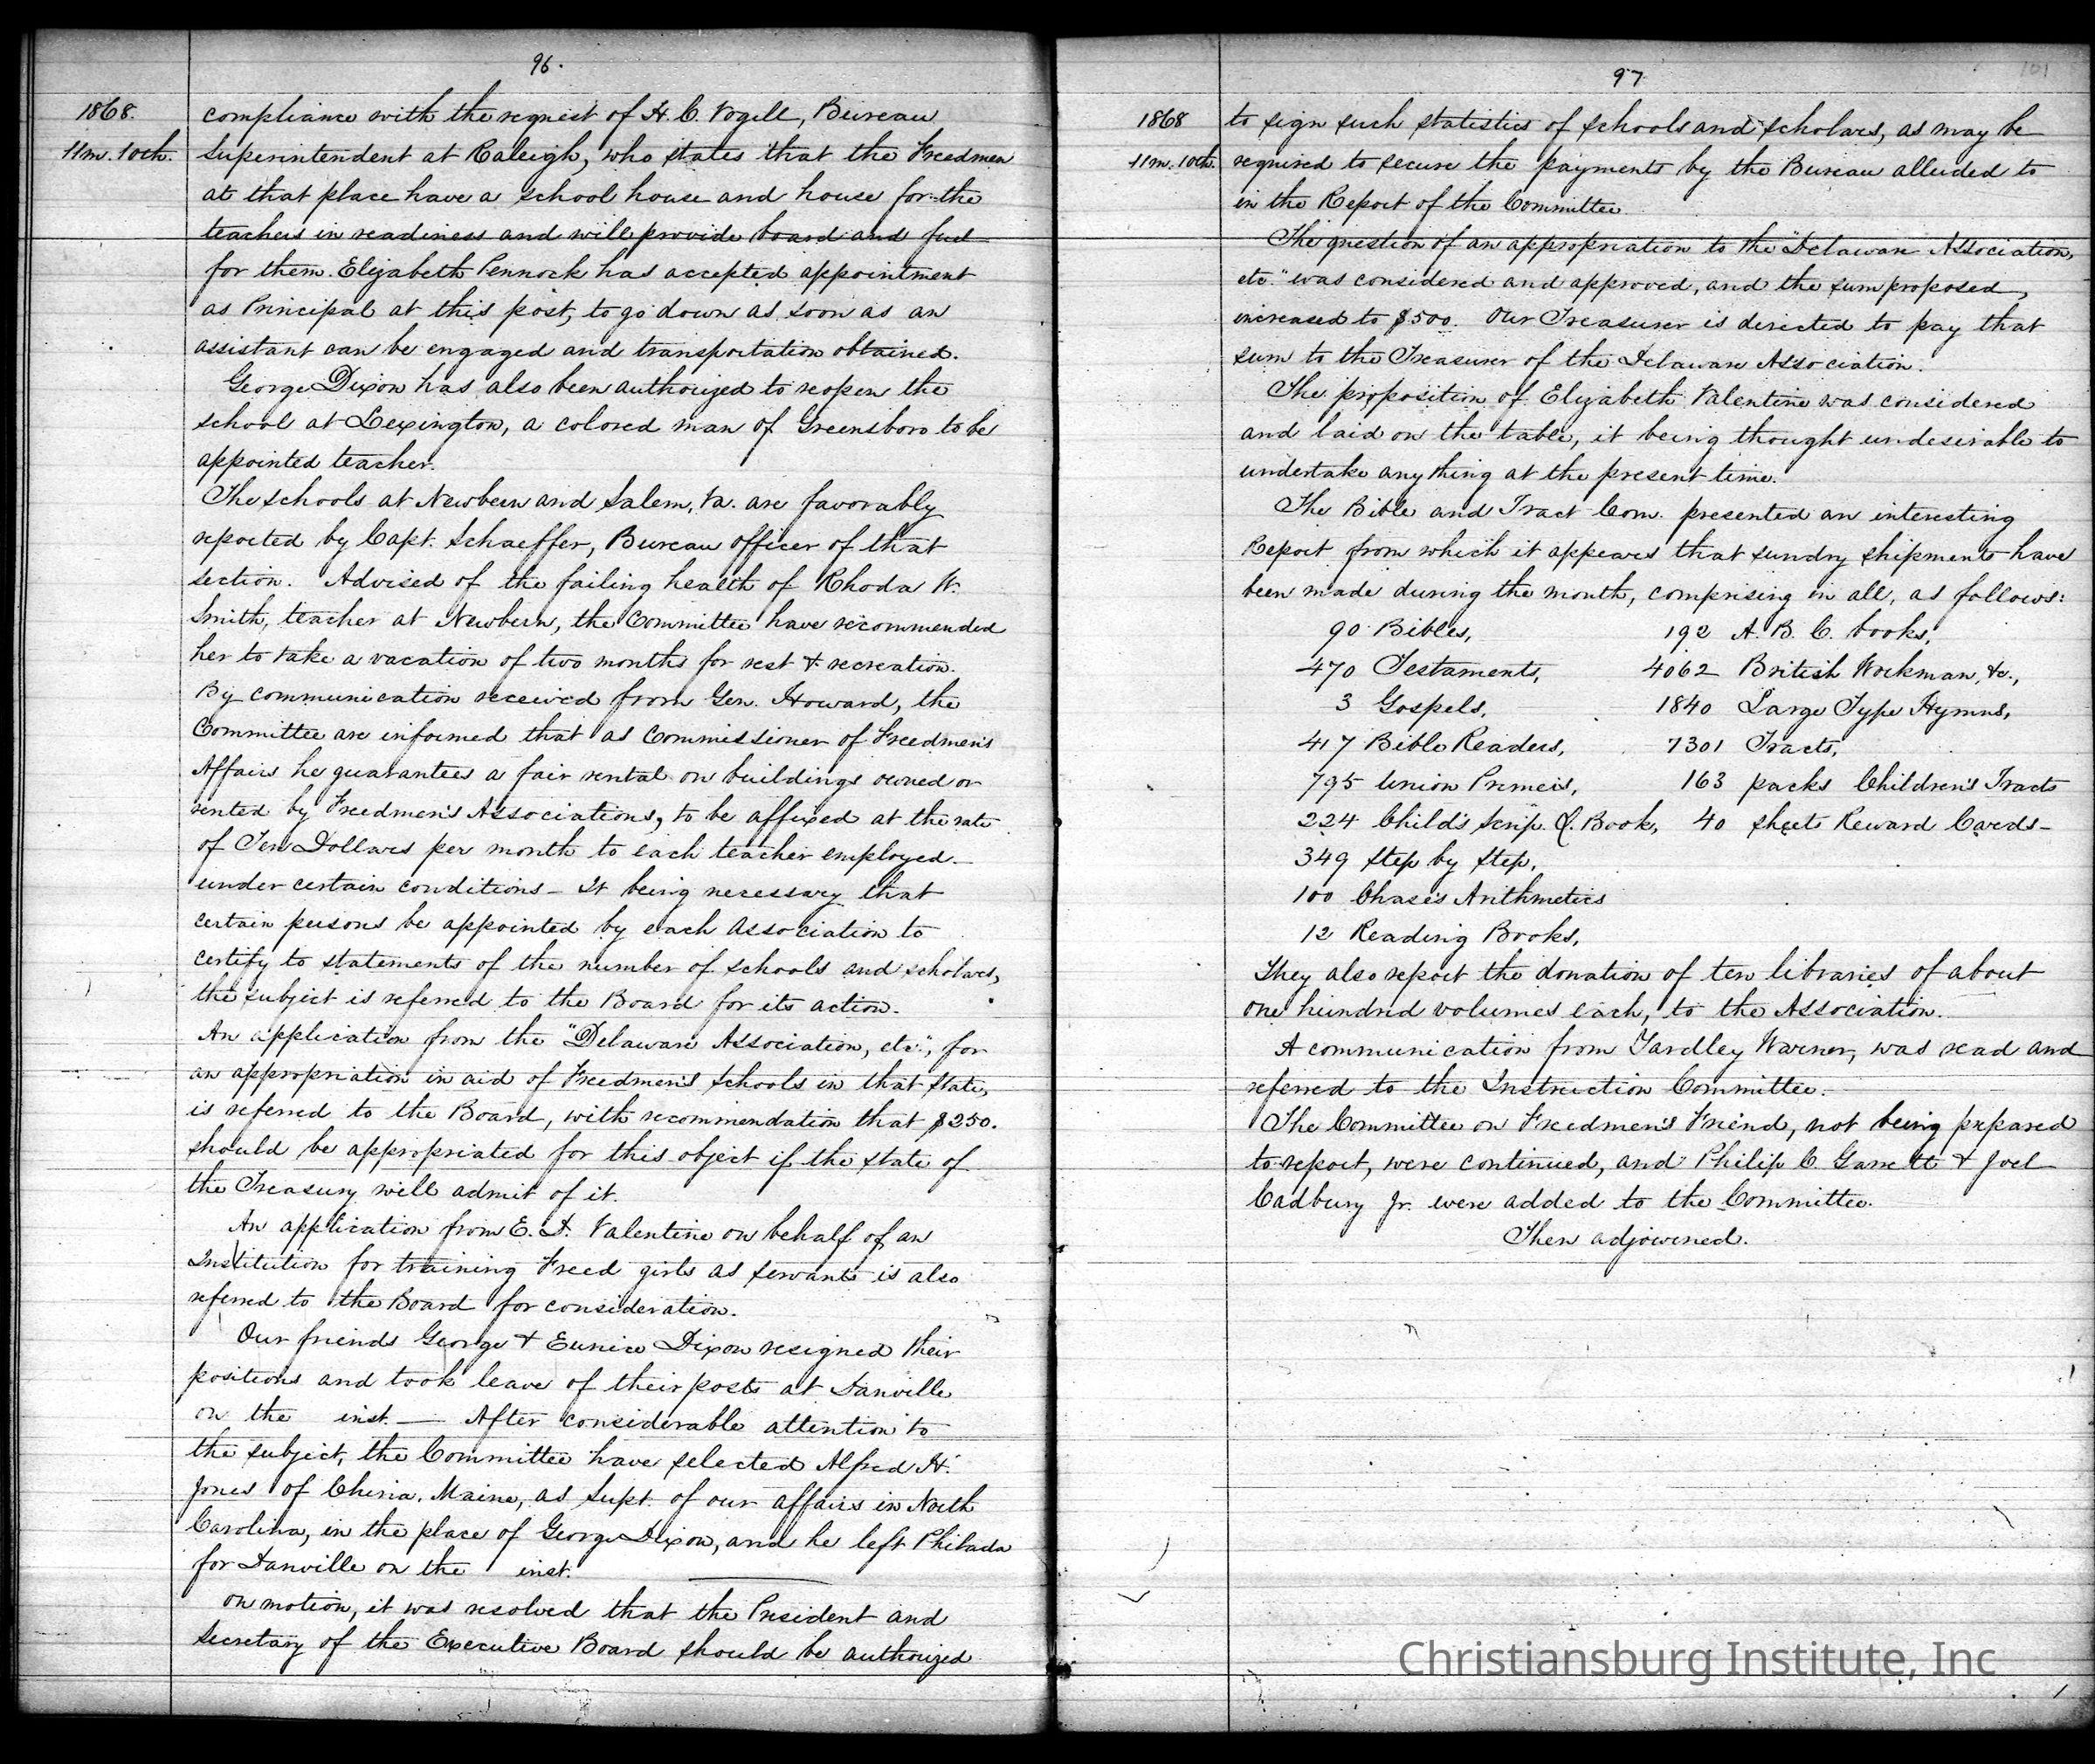 96.
1868.
11m. 10th.
compliance with the request of H. C. Vogell, Bureau
Superintendent at Raleigh, who states that the Freedmen
at that place have a school house and house for the
teachers in readiness and will provide board and fuel
for them. Elizabeth Pennock has accepted appointment
as Principal at this post, to go down as soon as an
assistant can be engaged and transportation obtained.
George Dixon has also been authorized to reopen the
school at Lexington, a colored man of Greensboro to be
appointed teacher.
The schools at Newbern and Salem, Va. are favorably
reported by Capt. Schaeffer, Bureau officer of that
section. Advised of the failing health of Rhoda W.
Smith, teacher at Newbern, the Committee have recommended
her to take a vacation of two months for rest & recreation.
By communication received from Gen. Howard, the
Committee are informed that as Commissioner of Freedmen's
Affairs he guarantees a fair rental on buildings owned or
rented by Freedmen's Associations, to be affixed at the rate
of Ten Dollars per month to each teacher employed.
under certain conditions - It being necessary that
certain persons be appointed by each Association to
certify to statements of the number of schools and scholars,
the subject is referred to the Board for its action.
An application from the "Delaware Association, etc.", for
an appropriation in aid of Freedmen's Schools in that State,
is referred to the Board, with recommendation that $250.
should be appropriated for this object if the state of
the Treasury will admit of it.
An application from E. D. Valentine on behalf of an
Institution for training Freed girls as servants is also
referred to the Board for consideration.
Our friends George & Eunice Dixon resigned their
positions and took leave of their posts at Danville
on the inst. — After considerable attention to
the subject, the Committee have selected Alfred H.
Jones of China, Maine, as Supt. of our affairs in North
Carolina, in the place of George Dixon, and he left Philada
for Danville on the inst.
On motion, it was resolved that the President and
Secretary of the Executive Board should be authorized
97
101
1868
11m. 10th.
to sign such statistics of schools and scholars, as may be
required to secure the payments by the Bureau alluded to
in the Report of the Committee.
The question of an appropriation to the "Delaware Association,
etc." was considered and approved, and the sum proposed,
increased to $500. Our Treasurer is directed to pay that
sum to the Treasurer of the Delaware Association.
The proposition of Elizabeth Valentine was considered
and laid on the table, it being thought undesirable to
undertake anything at the present time.
The Bible and Tract Com. presented an interesting
Report from which it appears that sundry shipments have
been made during the month, comprising in all, as follows:
90 Bibles, 192 A. B. C. books,
470 Testaments, 4062 British Workman, &c.,
3 Gospels, 1840 Large Type Hymns,
417 Bible Readers, 7301 Tracts,
795 Union Primers, 163 packs Children's Tracts
224 Child's Scrip. Q. Book, 40 sheets Reward Cards -
349 Step by Step,
100 Chase's Arithmetics
12 Reading Books,
They also report the donation of ten libraries of about
one hundred volumes each, to the Association.
A communication from Yardley Warner, was read and
referred to the Instruction Committee.
The Committee on Freedmen's Friend, not being prepared
to report, were continued, and Philip C. Garrett & Joel
Cadbury Jr. were added to the Committee.
Then adjourned.
Christiansburg Institute, Inc